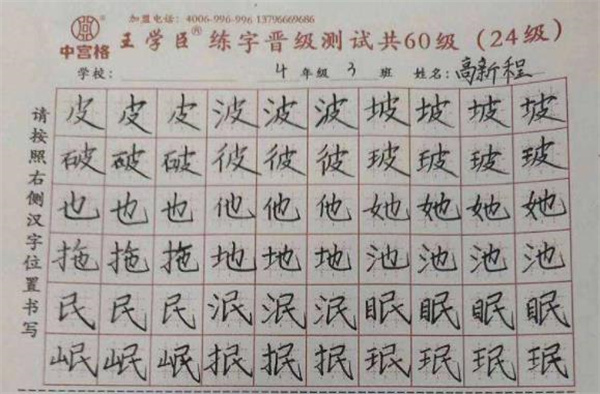 加盟电话：4006-996-996 13796669686
中宫格 王学臣® 练字晋级测试共60级（24级）
学校： 4 年级 3 班 姓名：高新程
请按照右侧汉字位置书写
皮 皮 皮 波 波 波 坡 坡 坡 坡
破 破 破 彼 彼 彼 玻 玻 玻 玻
也 也 也 他 他 他 她 她 她 她
拖 拖 拖 地 地 地 池 池 池 池
民 民 民 泯 泯 泯 眠 眠 眠 眠
岷 岷 岷 抿 抿 抿 珉 珉 珉 珉